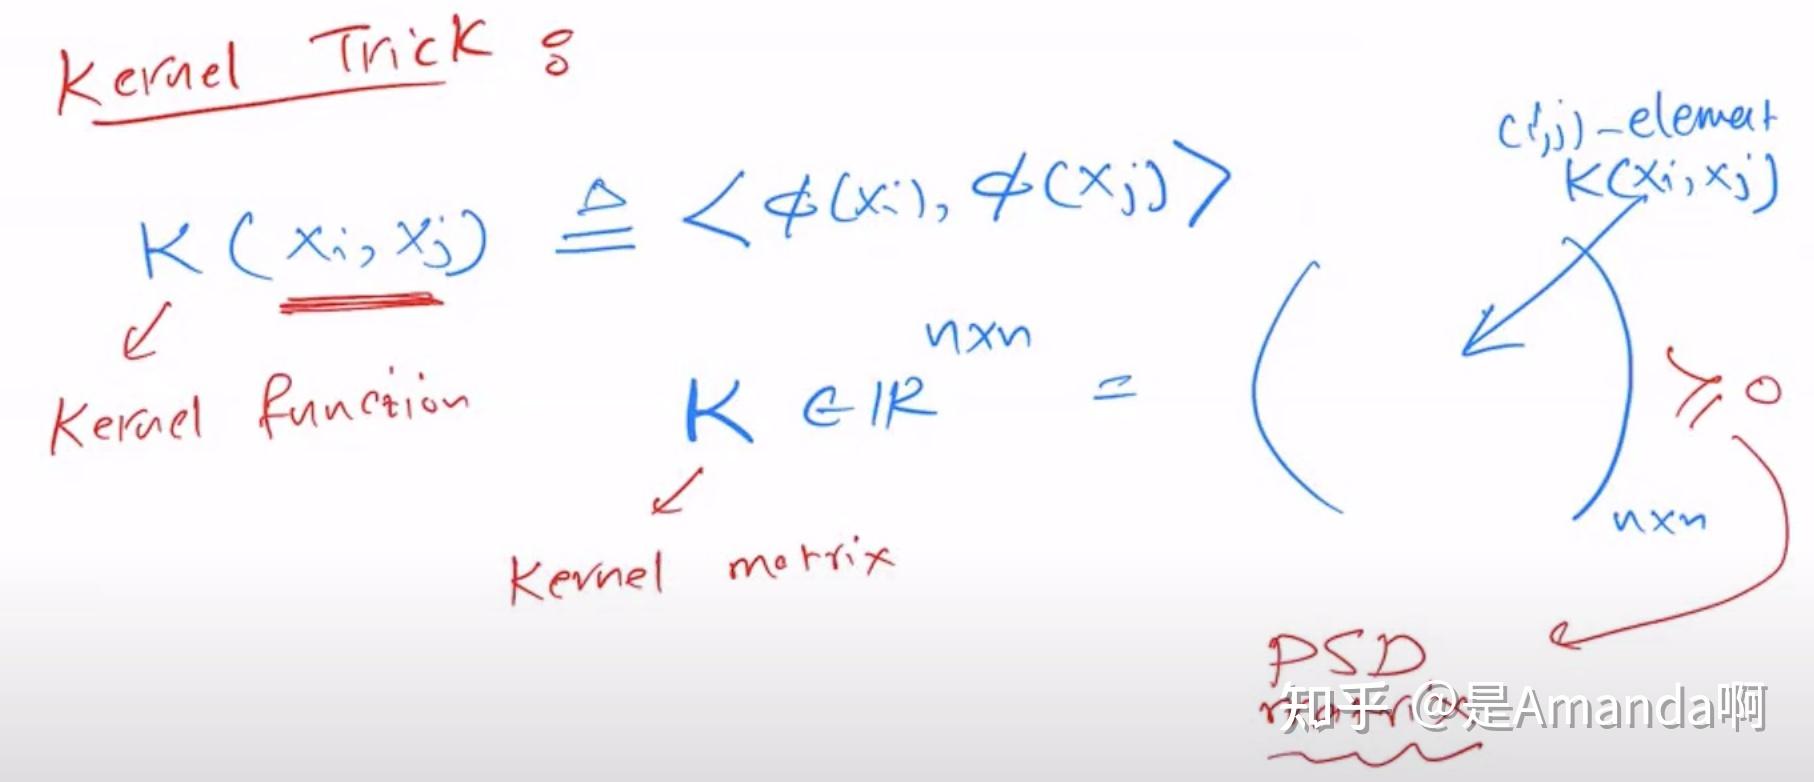 Kernel Trick :
(i,j)-element
K(xi, xj) ≜ <ϕ(xi), ϕ(xj)>
K(xi, xj)
Kernel function
K ∈ IR^{n×n} = ( )_{n×n} ≽ 0
Kernel matrix
PSD
matrix
知乎 @是Amanda啊